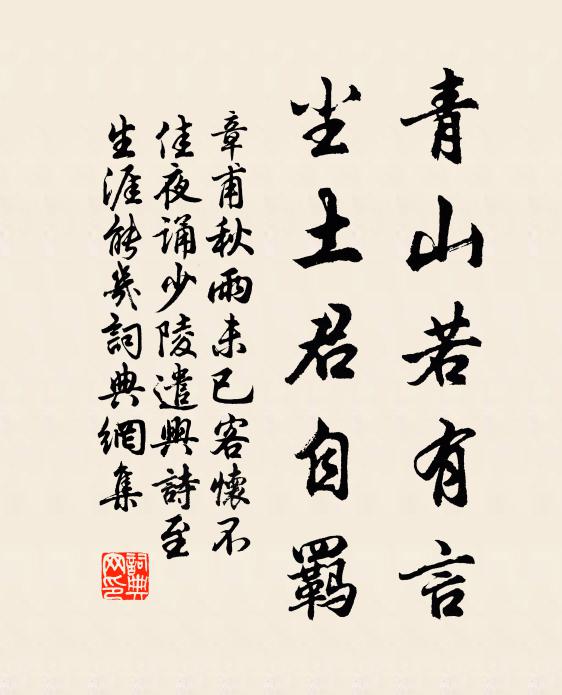 青山若有言
尘土君自羁
章甫秋雨未已客懷不
佳夜诵少陵遣興詩至
生涯能幾詞典網集
詞典
网印